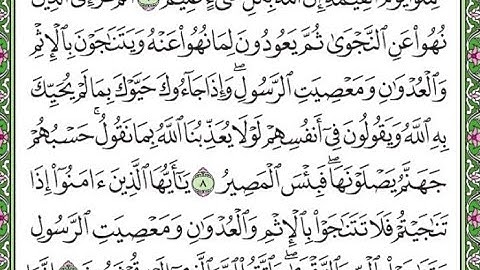 نُهُوا۟ عَنِ ٱلنَّجْوَىٰ ثُمَّ يَعُودُونَ لِمَا نُهُوا۟ عَنْهُ وَيَتَنَٰجَوْنَ بِٱلْإِثْمِ
وَٱلْعُدْوَٰنِ وَمَعْصِيَتِ ٱلرَّسُولِۖ وَإِذَا جَآءُوكَ حَيَّوْكَ بِمَا لَمْ يُحَيِّكَ
بِهِ ٱللَّهُ وَيَقُولُونَ فِىٓ أَنفُسِهِمْ لَوْلَا يُعَذِّبُنَا ٱللَّهُ بِمَا نَقُولُۚ حَسْبُهُمْ
جَهَنَّمُ يَصْلَوْنَهَاۖ فَبِئْسَ ٱلْمَصِيرُ ٨ يَٰٓأَيُّهَا ٱلَّذِينَ ءَامَنُوٓا۟ إِذَا
تَنَٰجَيْتُمْ فَلَا تَتَنَٰجَوْا۟ بِٱلْإِثْمِ وَٱلْعُدْوَٰنِ وَمَعْصِيَتِ ٱلرَّسُولِ